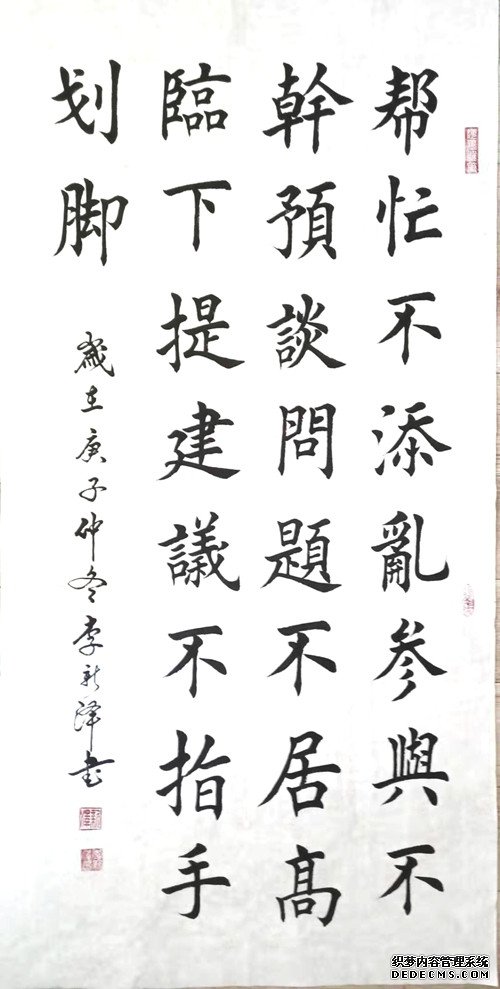 帮忙不添亂参與不
幹預談問題不居髙
臨下提建議不指手
划脚
歲在庚子仲冬李新泽書
织梦内容管理系统
DEDECMS.COM